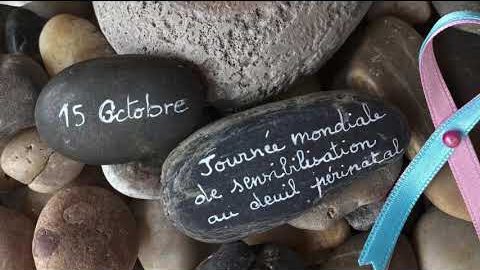 15 Octobre
Journée mondiale
de sensibilisation
au deuil périnatal